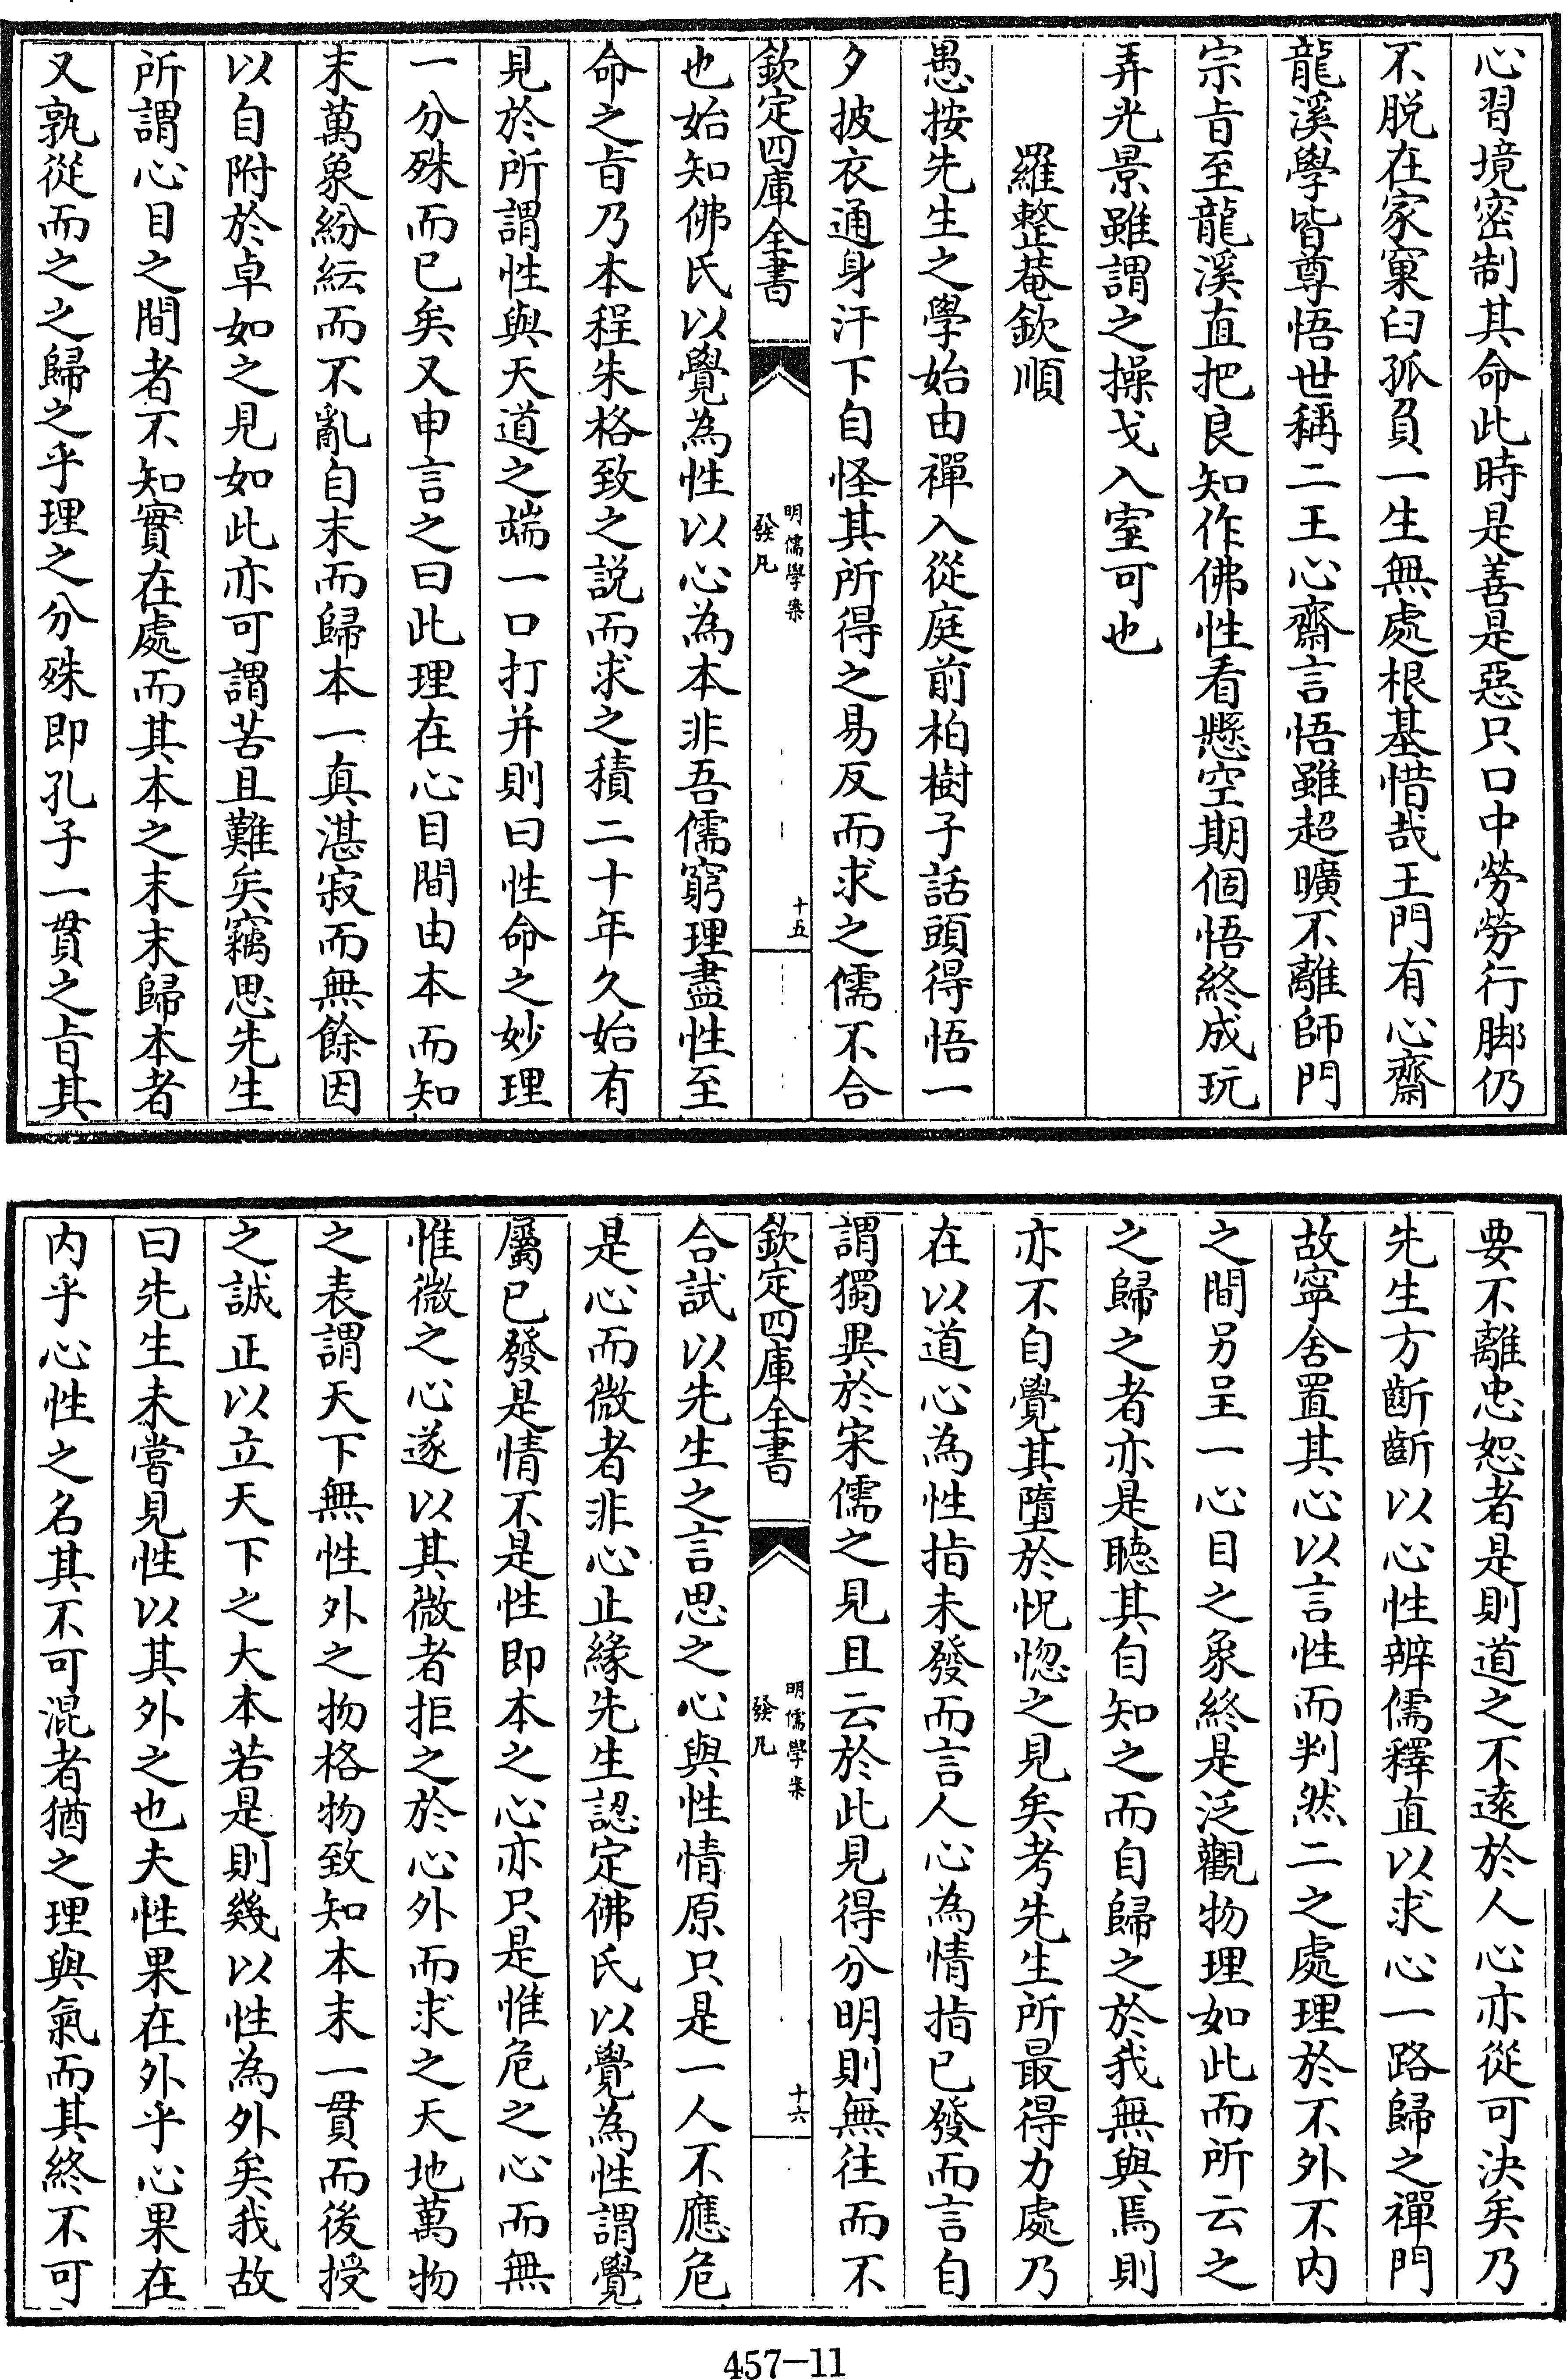 心習境密制其命此時是善是惡只口中勞勞行脚仍
不脱在家窠臼孤負一生無處根基惜哉王門有心齋
龍溪學皆尊悟世稱二王心齋言悟雖超曠不離師門
宗旨至龍溪直把良知作佛性看懸空期個悟終成玩
弄光景雖謂之操戈入室可也
羅整菴欽順
愚按先生之學始由禪入從庭前柏樹子話頭得悟一
夕披衣通身汗下自怪其所得之易反而求之儒不合
欽定四庫全書
明儒學案
發凡
十五
也始知佛氏以覺為性以心為本非吾儒窮理盡性至
命之旨乃本程朱格致之説而求之積二十年久始有
見於所謂性與天道之端一口打并則曰性命之妙理
一分殊而已矣又申言之曰此理在心目間由本而知
末萬象紛紜而不亂自末而歸本一真湛寂而無餘因
以自附於卓如之見如此亦可謂苦且難矣竊思先生
所謂心目之間者不知實在處而其本之末末歸本者
又孰從而之之歸之乎理之分殊即孔子一貫之旨其
要不離忠恕者是則道之不遠於人心亦從可決矣乃
先生方齗齗以心性辨儒釋直以求心一路歸之禪門
故寧舍置其心以言性而判然二之處理於不外不内
之間另呈一心目之象終是泛觀物理如此而所云之
之歸之者亦是聽其自知之而自歸之於我無與焉則
亦不自覺其墮於怳惚之見矣考先生所最得力處乃
在以道心為性指未發而言人心為情指已發而言自
謂獨異於宋儒之見且云於此見得分明則無往而不
欽定四庫全書
明儒學案
發凡
十六
合試以先生之言思之心與性情原只是一人不應危
是心而微者非心止緣先生認定佛氏以覺為性謂覺
屬已發是情不是性即本之心亦只是惟危之心而無
惟微之心遂以其微者拒之於心外而求之天地萬物
之表謂天下無性外之物格物致知本末一貫而後授
之誠正以立天下之大本若是則幾以性為外矣我故
曰先生未嘗見性以其外之也夫性果在外乎心果在
内乎心性之名其不可混者猶之理與氣而其終不可
457-11